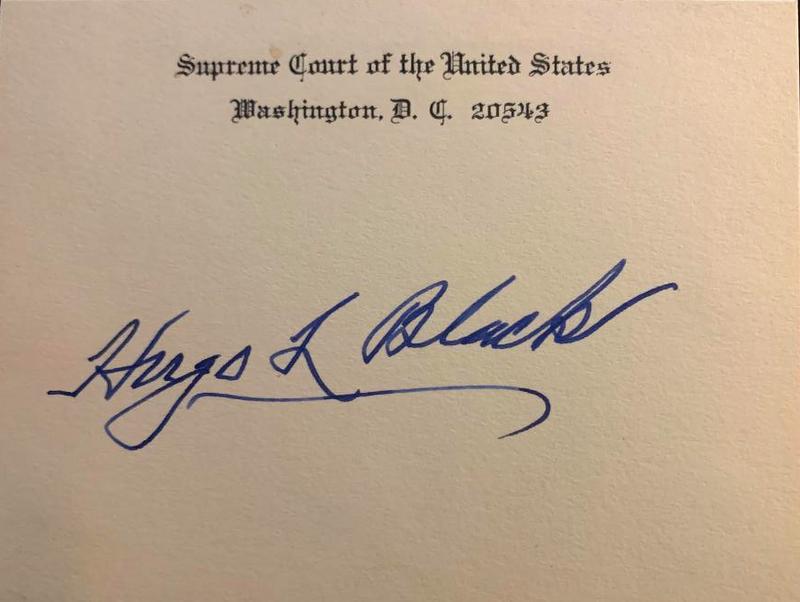 Supreme Court of the United States
Washington, D. C. 20543
Hugo L Black